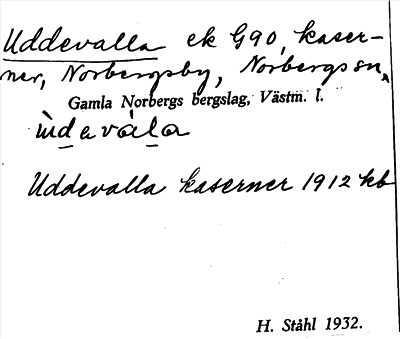 Uddevalla ek G90, kaser-
ner, Norbergsby, Norbergs sn,
Gamla Norbergs bergslag, Västm. l.
ùdevála
Uddevalla kaserner 1912 kb
H. Ståhl 1932.